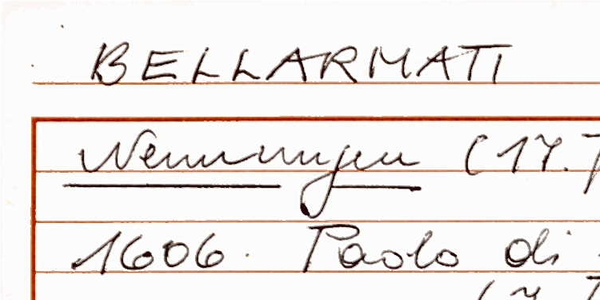 BELLARMATI
Nennungen (17.
1606. Paolo di